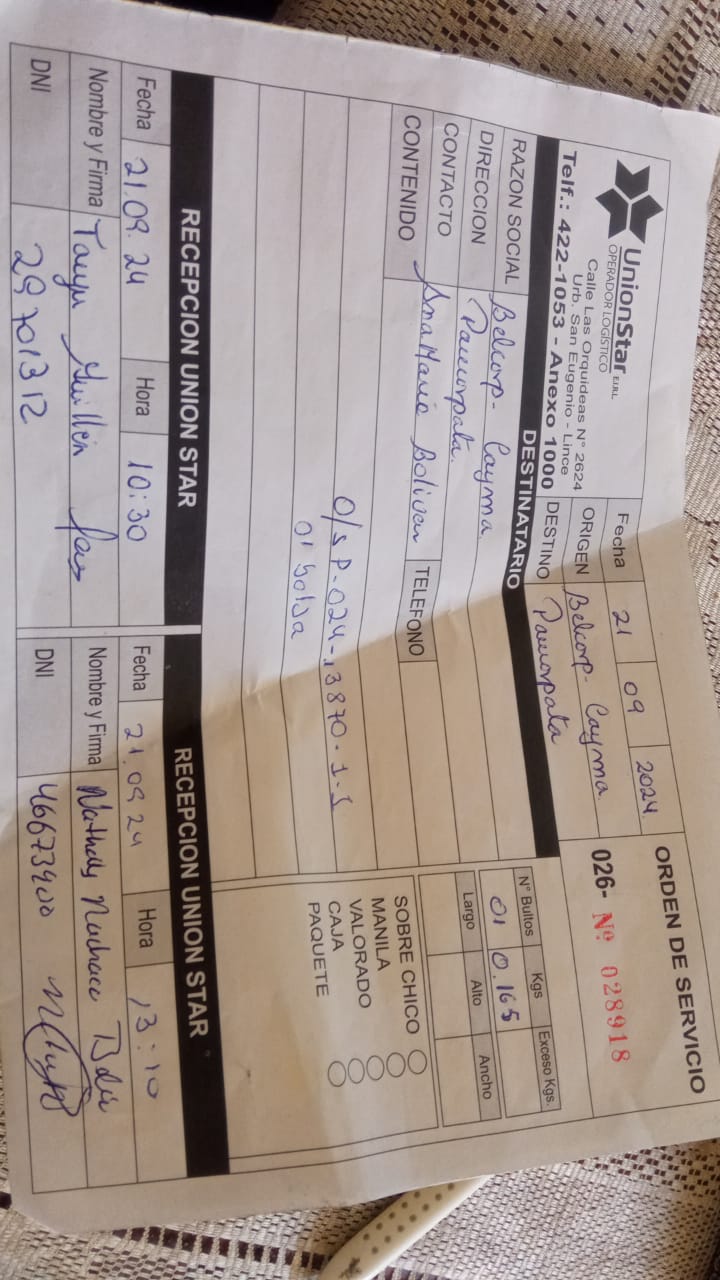 UnionStar E.I.R.L.
OPERADOR LOGÍSTICO
Calle Las Orquideas N° 2624
Urb. San Eugenio - Lince
Telf.: 422-1053 - Anexo 1000
Fecha 21 09 2024
ORIGEN Belcorp- Cayma
DESTINO Paucarpata
ORDEN DE SERVICIO
026- Nº 028918
DESTINATARIO
RAZON SOCIAL Belcorp- Cayma
DIRECCION Paucarpata
CONTACTO Ana Maria Bolivar TELEFONO
CONTENIDO
O/S P-024-13870-1-1
01 bolsa
N° Bultos Kgs Exceso Kgs.
01 0.165
Largo Alto Ancho
SOBRE CHICO
MANILA
VALORADO
CAJA
PAQUETE
RECEPCION UNION STAR
Fecha 21.09.24 Hora 10:30
Nombre y Firma Guillén
DNI 29701312
RECEPCION UNION STAR
Fecha 21.09.24 Hora 13:10
Nombre y Firma Nathaly
DNI 46673900